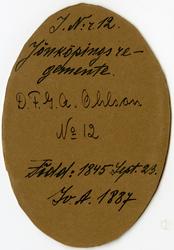 I. Nr 12.
Jönköpings re-
gemente.
D.F.G.A. Ohlson
No 12
Född: 1845 Sept. 23.
Iv A. 1887